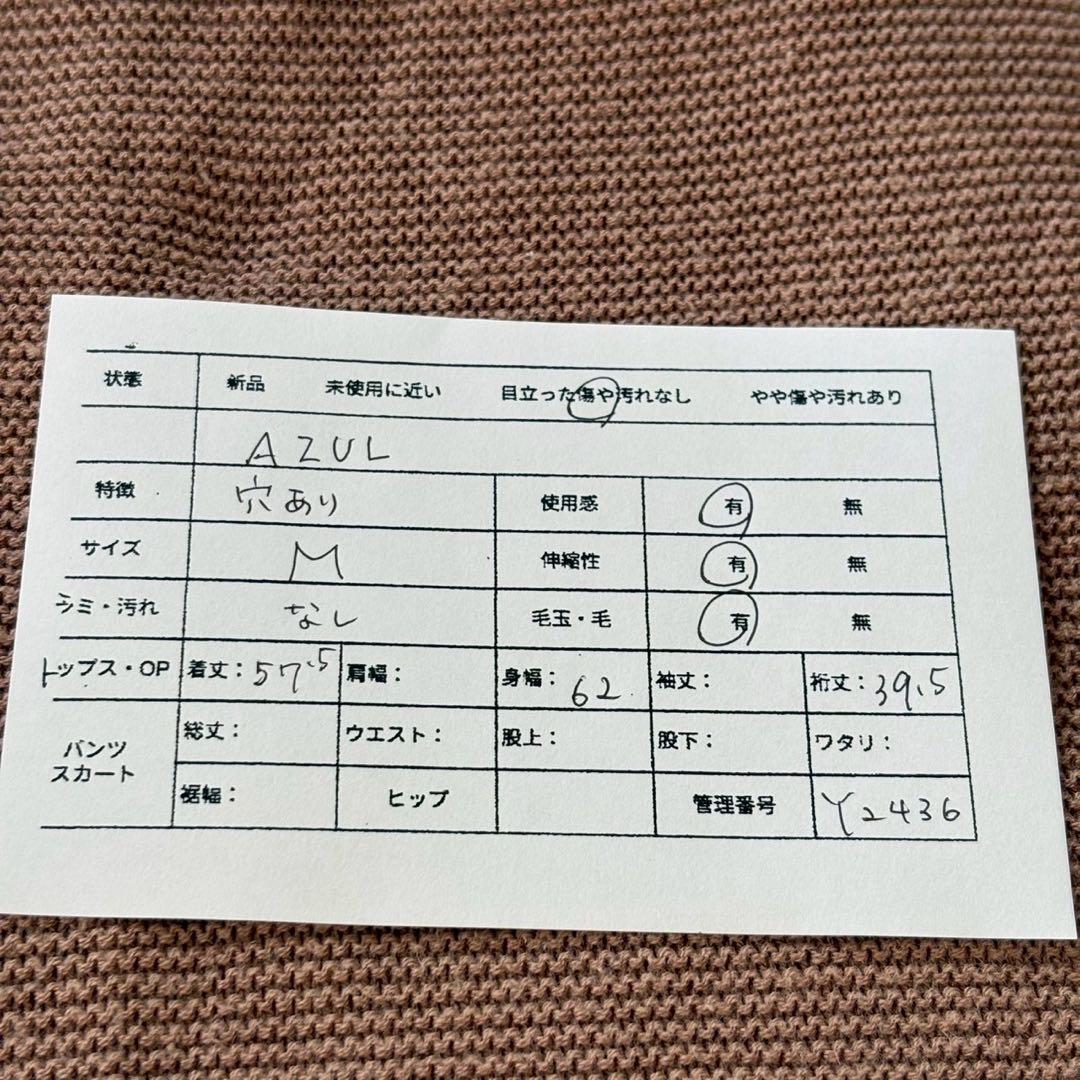 状態 新品 未使用に近い 目立った傷や汚れなし やや傷や汚れあり
AZUL
特徴 穴あり 使用感 有 無
サイズ M 伸縮性 有 無
シミ・汚れ なし 毛玉・毛 有 無
トップス・OP 着丈：57.5 肩幅： 身幅：62 袖丈： 裄丈：39.5
パンツ スカート 総丈： ウエスト： 股上： 股下： ワタリ：
裾幅： ヒップ 管理番号 Y2436